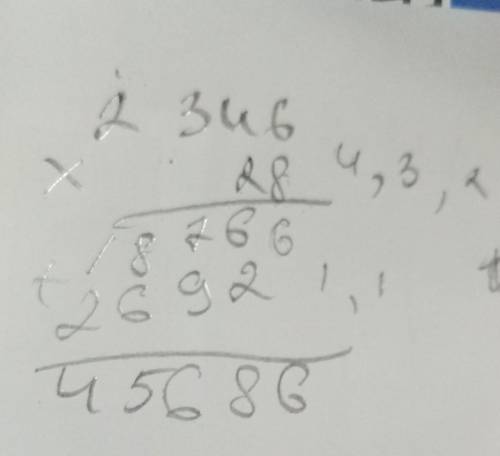 2 346
× 28 4, 3, 2
18766
+ 2692 1, 1
45686